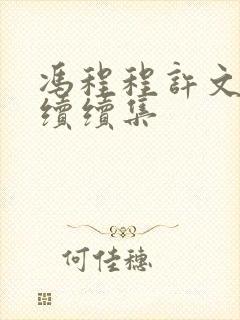 馮程程許文
續續集
何佳穗